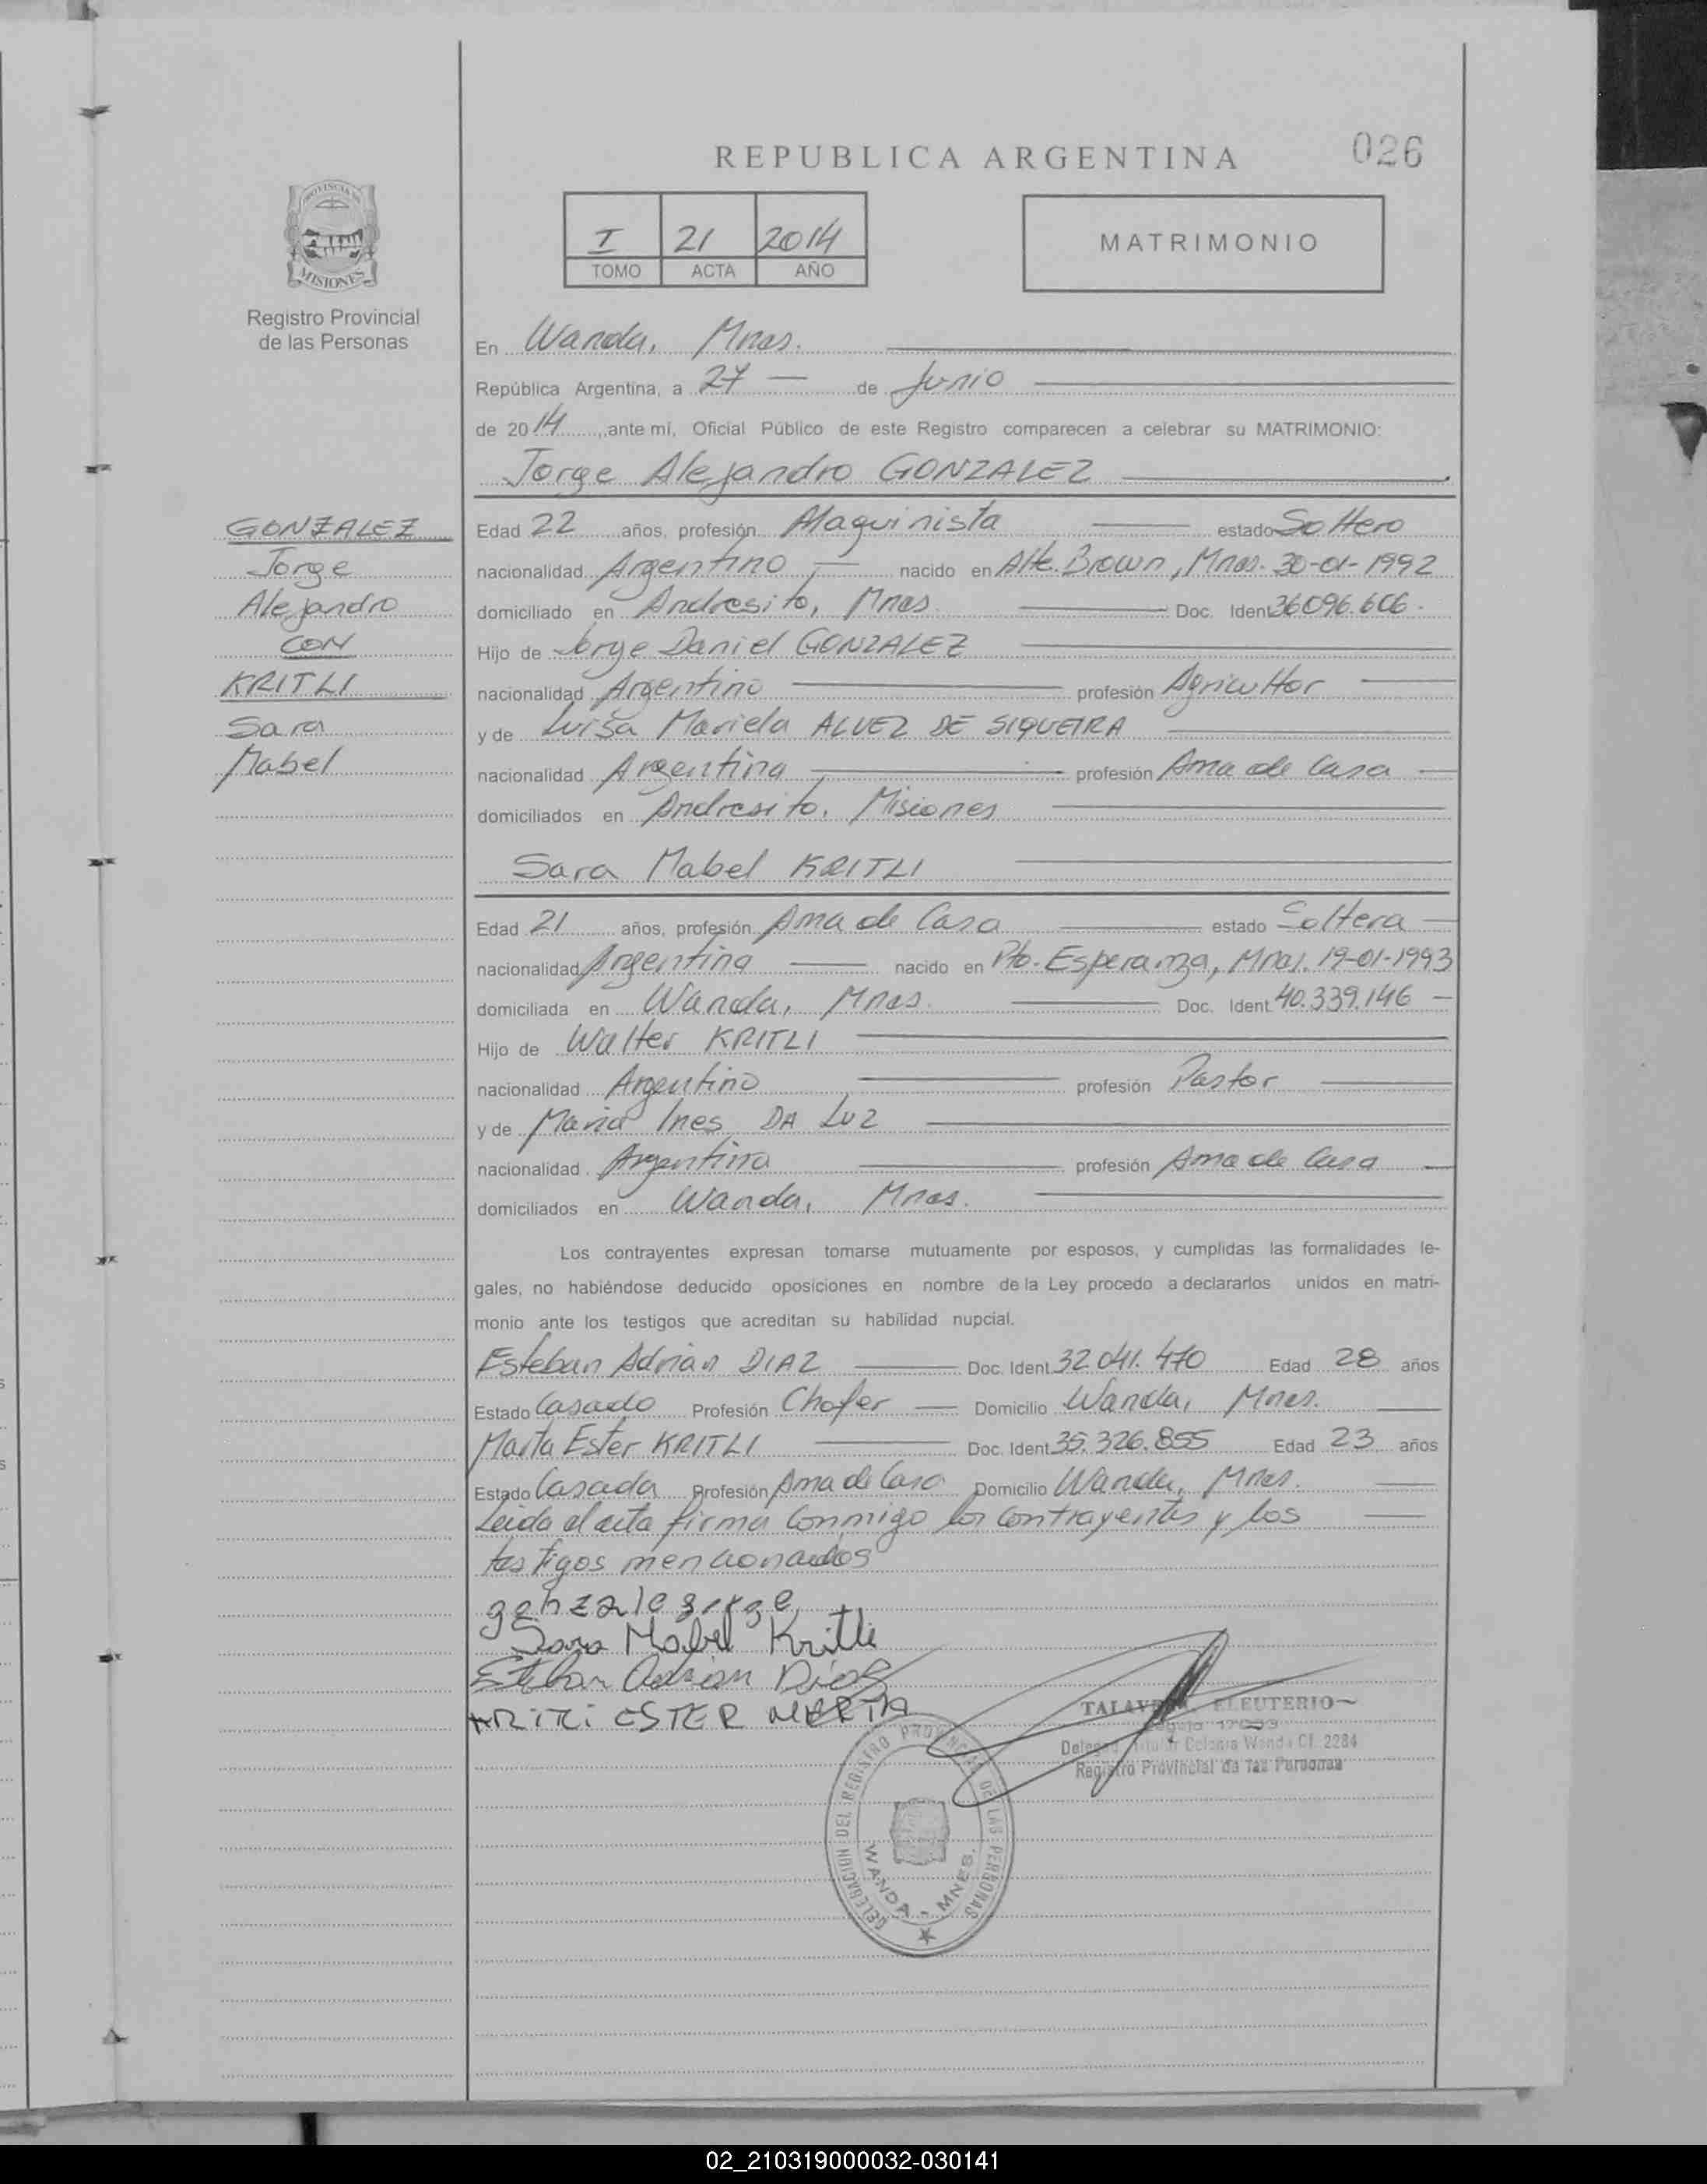 026
REPUBLICA ARGENTINA
I 21 2014
TOMO ACTA AÑO
MATRIMONIO
PROVINCIA DE
MISIONES
Registro Provincial
de las Personas
En Wanda, Mnes.
República Argentina, a 27 — de Junio
de 2014, ante mi, Oficial Público de este Registro comparecen a celebrar su MATRIMONIO:
Jorge Alejandro GONZALEZ
GONZALEZ
Jorge
Alejandro
CON
KRITLI
Sara
Mabel
Edad 22 años, profesión Maquinista estado Soltero
nacionalidad Argentino nacido en Alte. Brown, Mnes. 30-01-1992
domiciliado en Andresito, Mnes. Doc. Ident 36096.606.
Hijo de Jorge Daniel GONZALEZ
nacionalidad Argentino profesión Agricultor
y de Luisa Mariela ALVEZ DE SIQUEIRA
nacionalidad Argentina profesión Ama de Casa
domiciliados en Andresito, Misiones
Sara Mabel KRITLI
Edad 21 años, profesión Ama de Casa estado Soltera
nacionalidad Argentina nacido en Pto. Esperanza, Mnes. 19-01-1993
domiciliada en Wanda, Mnes. Doc. Ident 40.339.146
Hijo de Walter KRITLI
nacionalidad Argentino profesión Pastor
y de Maria Ines DA LUZ
nacionalidad Argentina profesión Ama de Casa
domiciliados en Wanda, Mnes.
Los contrayentes expresan tomarse mutuamente por esposos, y cumplidas las formalidades le-
gales, no habiéndose deducido oposiciones en nombre de la Ley procedo a declararlos unidos en matri-
monio ante los testigos que acreditan su habilidad nupcial.
Esteban Adrian DIAZ Doc. Ident 32.041.470 Edad 28 años
Estado Casado Profesión Chofer Domicilio Wanda, Mnes.
Marta Ester KRITLI Doc. Ident 35.326.855 Edad 23 años
Estado Casada Profesión Ama de Casa Domicilio Wanda, Mnes.
Leida el acta firma conmigo los contrayentes y los
testigos mencionados
Sara Mabel Kritli
Esteban Adrian Diaz
ESTER MARTA
ELEUTERIO
Titular Colonia Wanda Cl. 2284
Registro Provincial de las Personas
DELEGACION DEL REGISTRO PROVINCIAL DE LAS PERSONAS
WANDA - MNES.
02_210319000032-030141